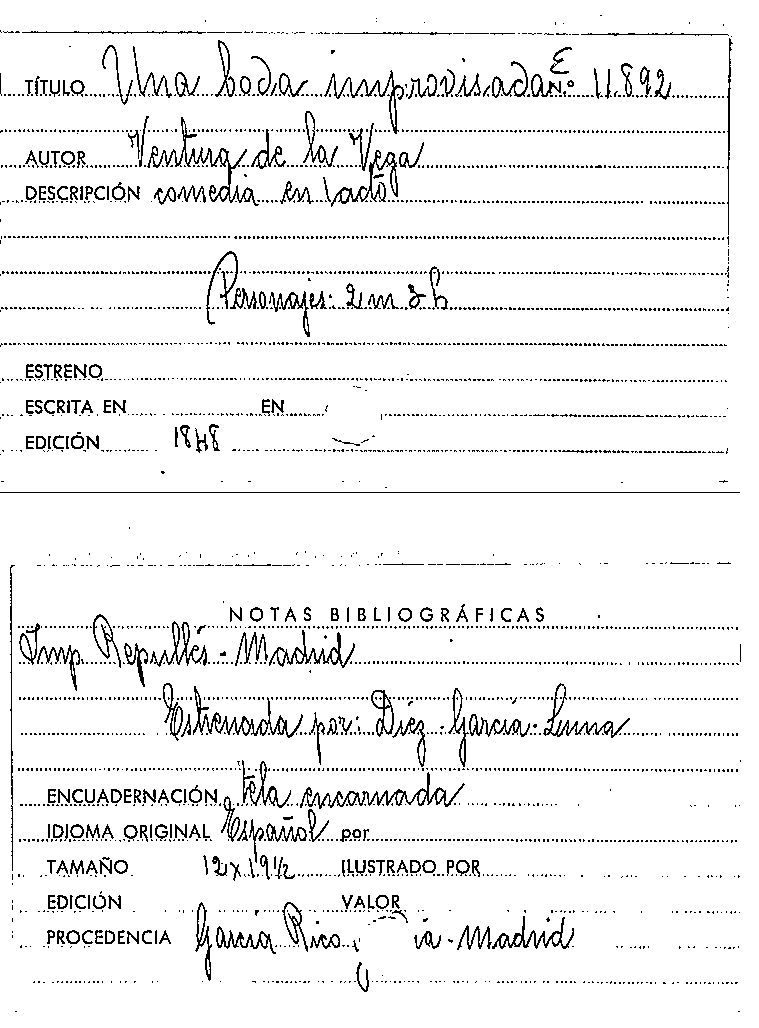 TÍTULO Una boda improvisada N.º E 11.892
AUTOR Ventura de la Vega
DESCRIPCIÓN comedia en 1 acto
Personajes: 2 m 3 h
ESTRENO
ESCRITA EN EN
EDICIÓN 1848
NOTAS BIBLIOGRÁFICAS
Imp Repullés - Madrid
Estrenada por: Díez - García - Luna
ENCUADERNACIÓN tela encarnada
IDIOMA ORIGINAL Español por
TAMAÑO 12 x 19 1/2 ILUSTRADO POR
EDICIÓN VALOR
PROCEDENCIA García Rico ia - Madrid